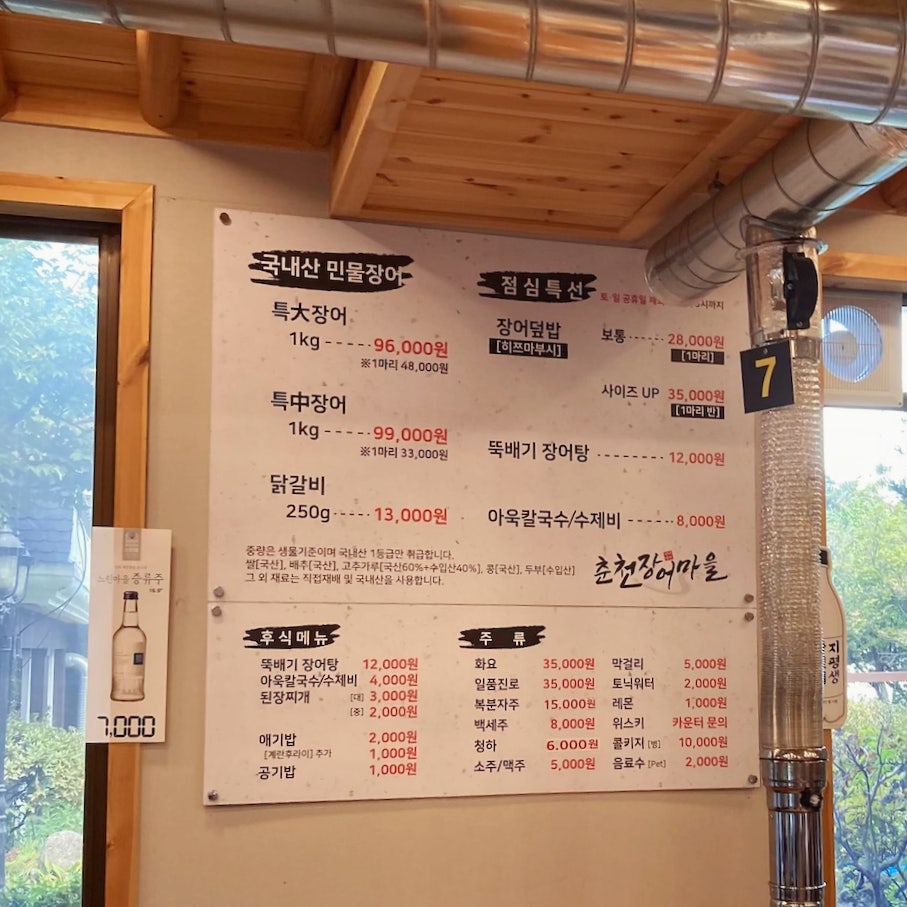 국내산 민물장어
특大장어
1kg ----- 96,000원
※1마리 48,000원
특中장어
1kg ------ 99,000원
※1마리 33,000원
닭갈비
250g ------ 13,000원
점심특선
토·일 공휴일 시까지
장어덮밥
[히쯔마부시]
보통 ------ 28,000원
[1마리]
사이즈 UP 35,000원
[1마리 반]
뚝배기 장어탕 ------ 12,000원
아욱칼국수/수제비 ------ 8,000원
중량은 생물기준이며 국내산 1등급만 취급합니다.
쌀[국산], 배추[국산], 고추가루[국산60%+수입산40%], 콩[국산], 두부[수입산]
그 외 재료는 직접재배 및 국내산을 사용합니다.
춘천장어마을
후식메뉴
뚝배기 장어탕 12,000원
아욱칼국수/수제비 4,000원
된장찌개 [대] 3,000원
[중] 2,000원
애기밥 2,000원
[계란후라이] 추가 1,000원
공기밥 1,000원
주 류
화요 35,000원
일품진로 35,000원
복분자주 15,000원
백세주 8,000원
청하 6,000원
소주/맥주 5,000원
막걸리 5,000원
토닉워터 2,000원
레몬 1,000원
위스키 카운터 문의
콜키지 [병] 10,000원
음료수 [Pet] 2,000원
7
느린마을 증류주
16.9°
7,000
지평생